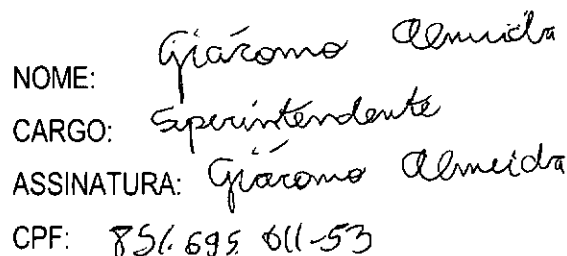 NOME: Giácomo Almeida
CARGO: Superintendente
ASSINATURA: Giácomo Almeida
CPF: 851.695.011-53